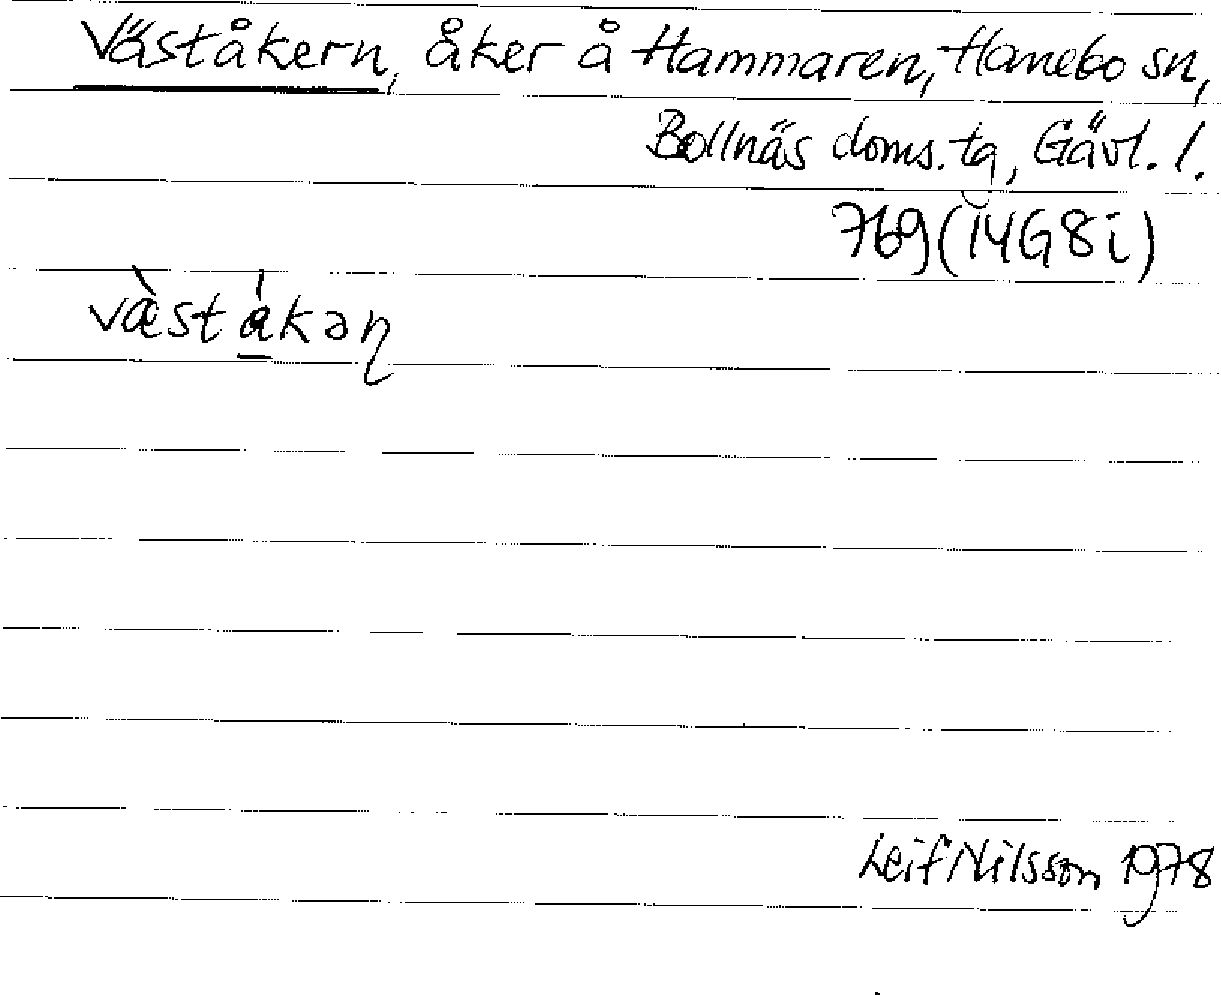 Väståkern, åker å Hammaren, Hanebo sn,
Bollnäs doms. tg, Gävl. l.
769 (14G8i)
væ̀stákəɳ
Leif Nilsson 1978